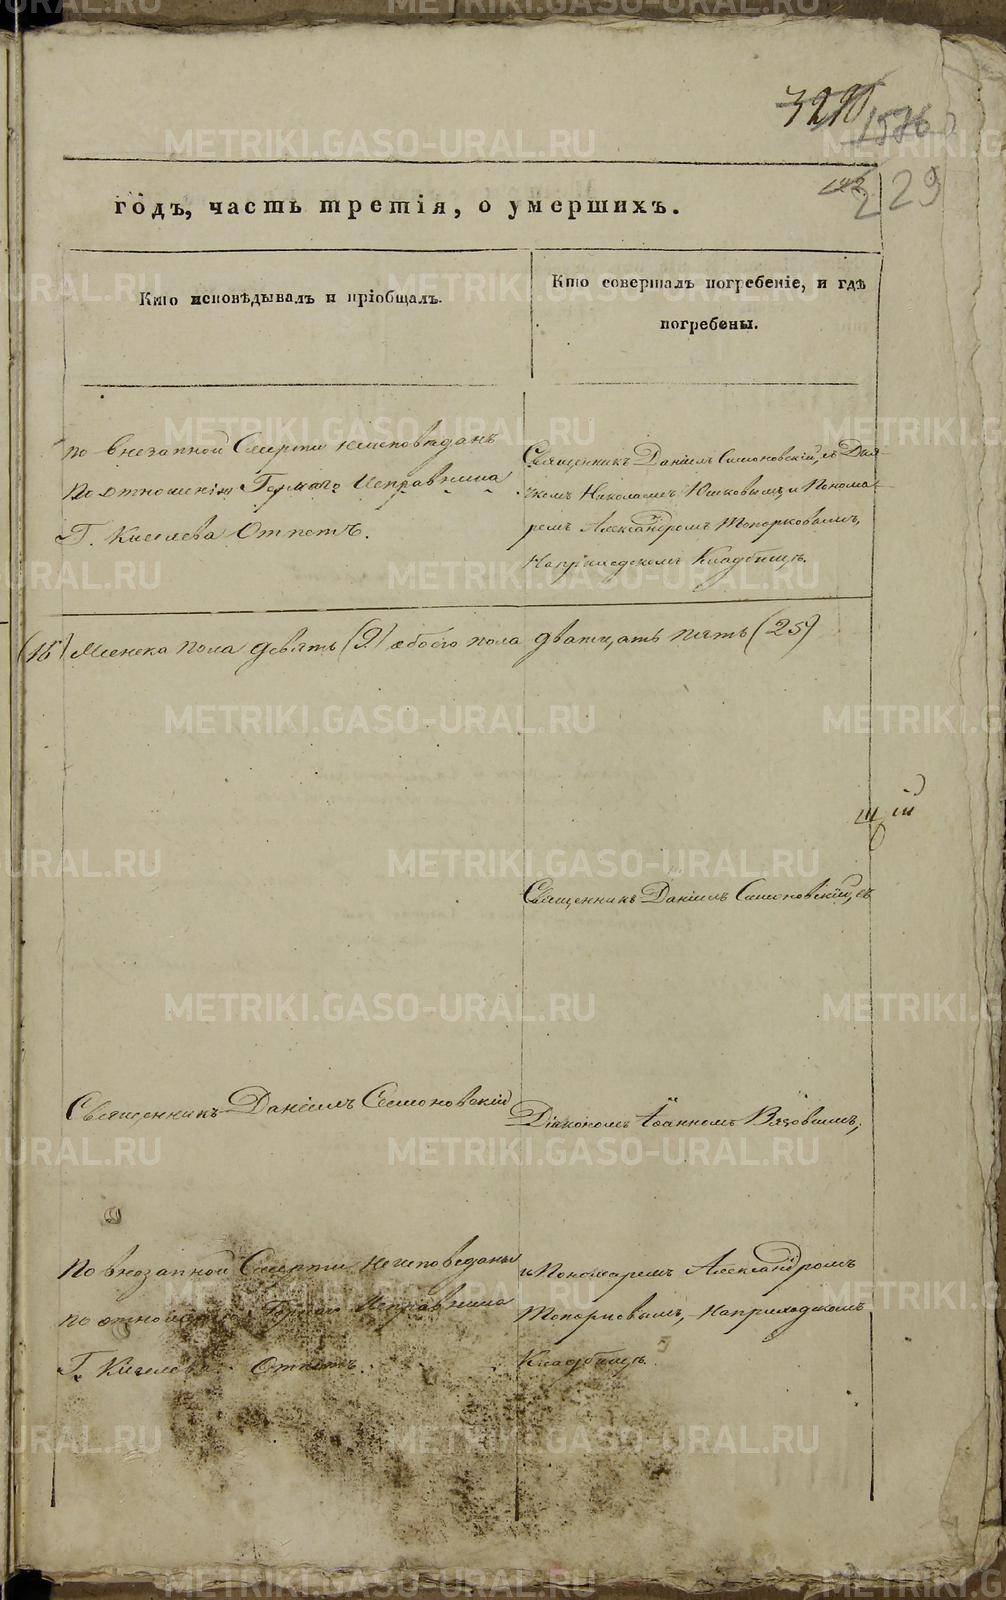 3290
1576
229
годъ, часть третія, о умершихъ.
Кто исповѣдывалъ и пріобщалъ.
Кто совершалъ погребеніе, и гдѣ
погребены.
по внезапной Смерти неисповѣданъ
По отношенію Горнаго Исправника
Г. Киселева Отпетъ.
Священникъ Даніилъ Симоновскій, съ Дья-
чкомъ Николаемъ и Понома-
ремъ Александромъ Топорковымъ,
Наприходскомъ Кладбищѣ.
(16) Женска пола девять (9) обоего пола дватцать пять (25)
щій
Священникъ Даніилъ Симоновскій, съ
Священникъ Даніилъ Симоновскій
Діакономъ Іоанномъ Вязовымъ,
По внезапной Смерти неисповеданъ
по отношенію Горнаго Исправника
Г. Киселева Отпетъ.
и Пономаремъ Александромъ
Топорковымъ, Наприходскомъ
Кладбищѣ.
METRIKI.GASO-URAL.RU